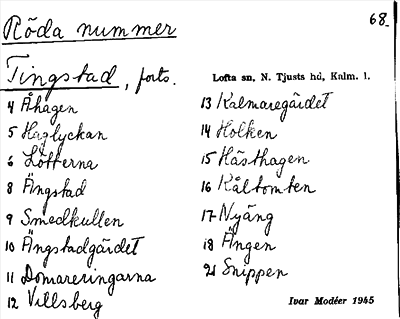 Röda nummer
68.
Tingstad, forts.
Lofta sn, N. Tjusts hd, Kalm. l.
4 Åhagen
5 Haglyckan
6 Lötterna
8 Ängstad
9 Smedkullen
10 Ängstadgärdet
11 Domareringarna
12 Villsberg
13 Kalmaregärdet
14 Holken
15 Hästhagen
16 Kåltomten
17 Nyäng
18 Ängen
21 Snippen
Ivar Modéer 1945